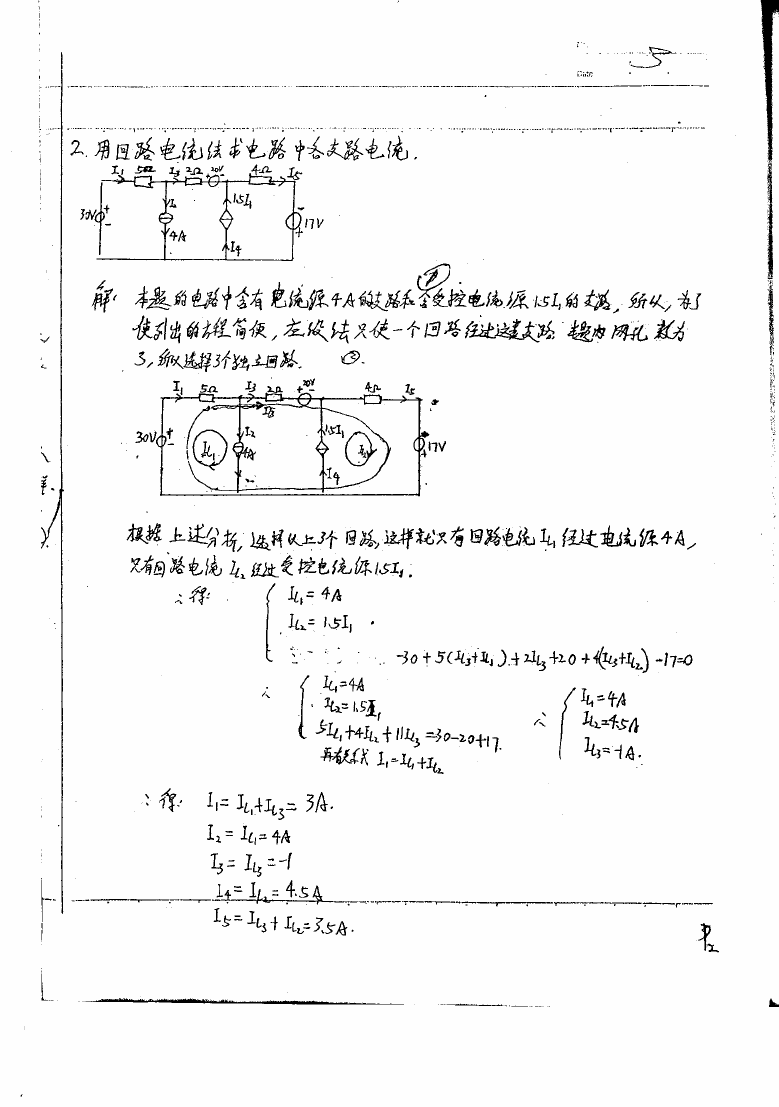 5
Date
2. 用回路电流法求电路中各支路电流.
I₁ 5Ω I₃ 2Ω + 20V - 4Ω I₅
30V + - I₂ 4A 1.5I₁ I₄ - + 17V
解: 本题的电路中含有电流源4A的支路和含受控电流源1.5I₁的支路, 所以, 为了
使列出的方程简便, 应设法只使一个回路经过这支路. 本题的网孔数为
3, 所以选择3个独立回路. ②.
I₁ 5Ω I₃ 2Ω + 20V 4Ω I₅
30V + - I_{L1} I₂ 4A 1.5I₁ I₄ 17V
根据上述分析, 选择以上3个回路, 这样就只有回路电流I_{L1}经过电流源4A,
只有回路电流I_{L2}经过受控电流源1.5I₁.
∴得: I_{L1} = 4A
I_{L2} = 1.5I₁
-30 + 5(I_{L3}+I_{L1}) + 2I_{L3} + 20 + 4(I_{L3}+I_{L2}) - 17 = 0
∴ I_{L1} = 4A
I_{L2} = 1.5I₁
5I_{L1} + 4I_{L2} + 11I_{L3} = 30-20+17.
I₁ = I_{L1} + I_{L2}
∴ I_{L1} = 4A
I_{L2} = 4.5A
I_{L3} = -1A.
∴得: I₁ = I_{L1} + I_{L3} = 3A.
I₂ = I_{L1} = 4A
I₃ = I_{L3} = -1
I₄ = I_{L2} = 4.5A
I₅ = I_{L3} + I_{L2} = 3.5A.
P₂